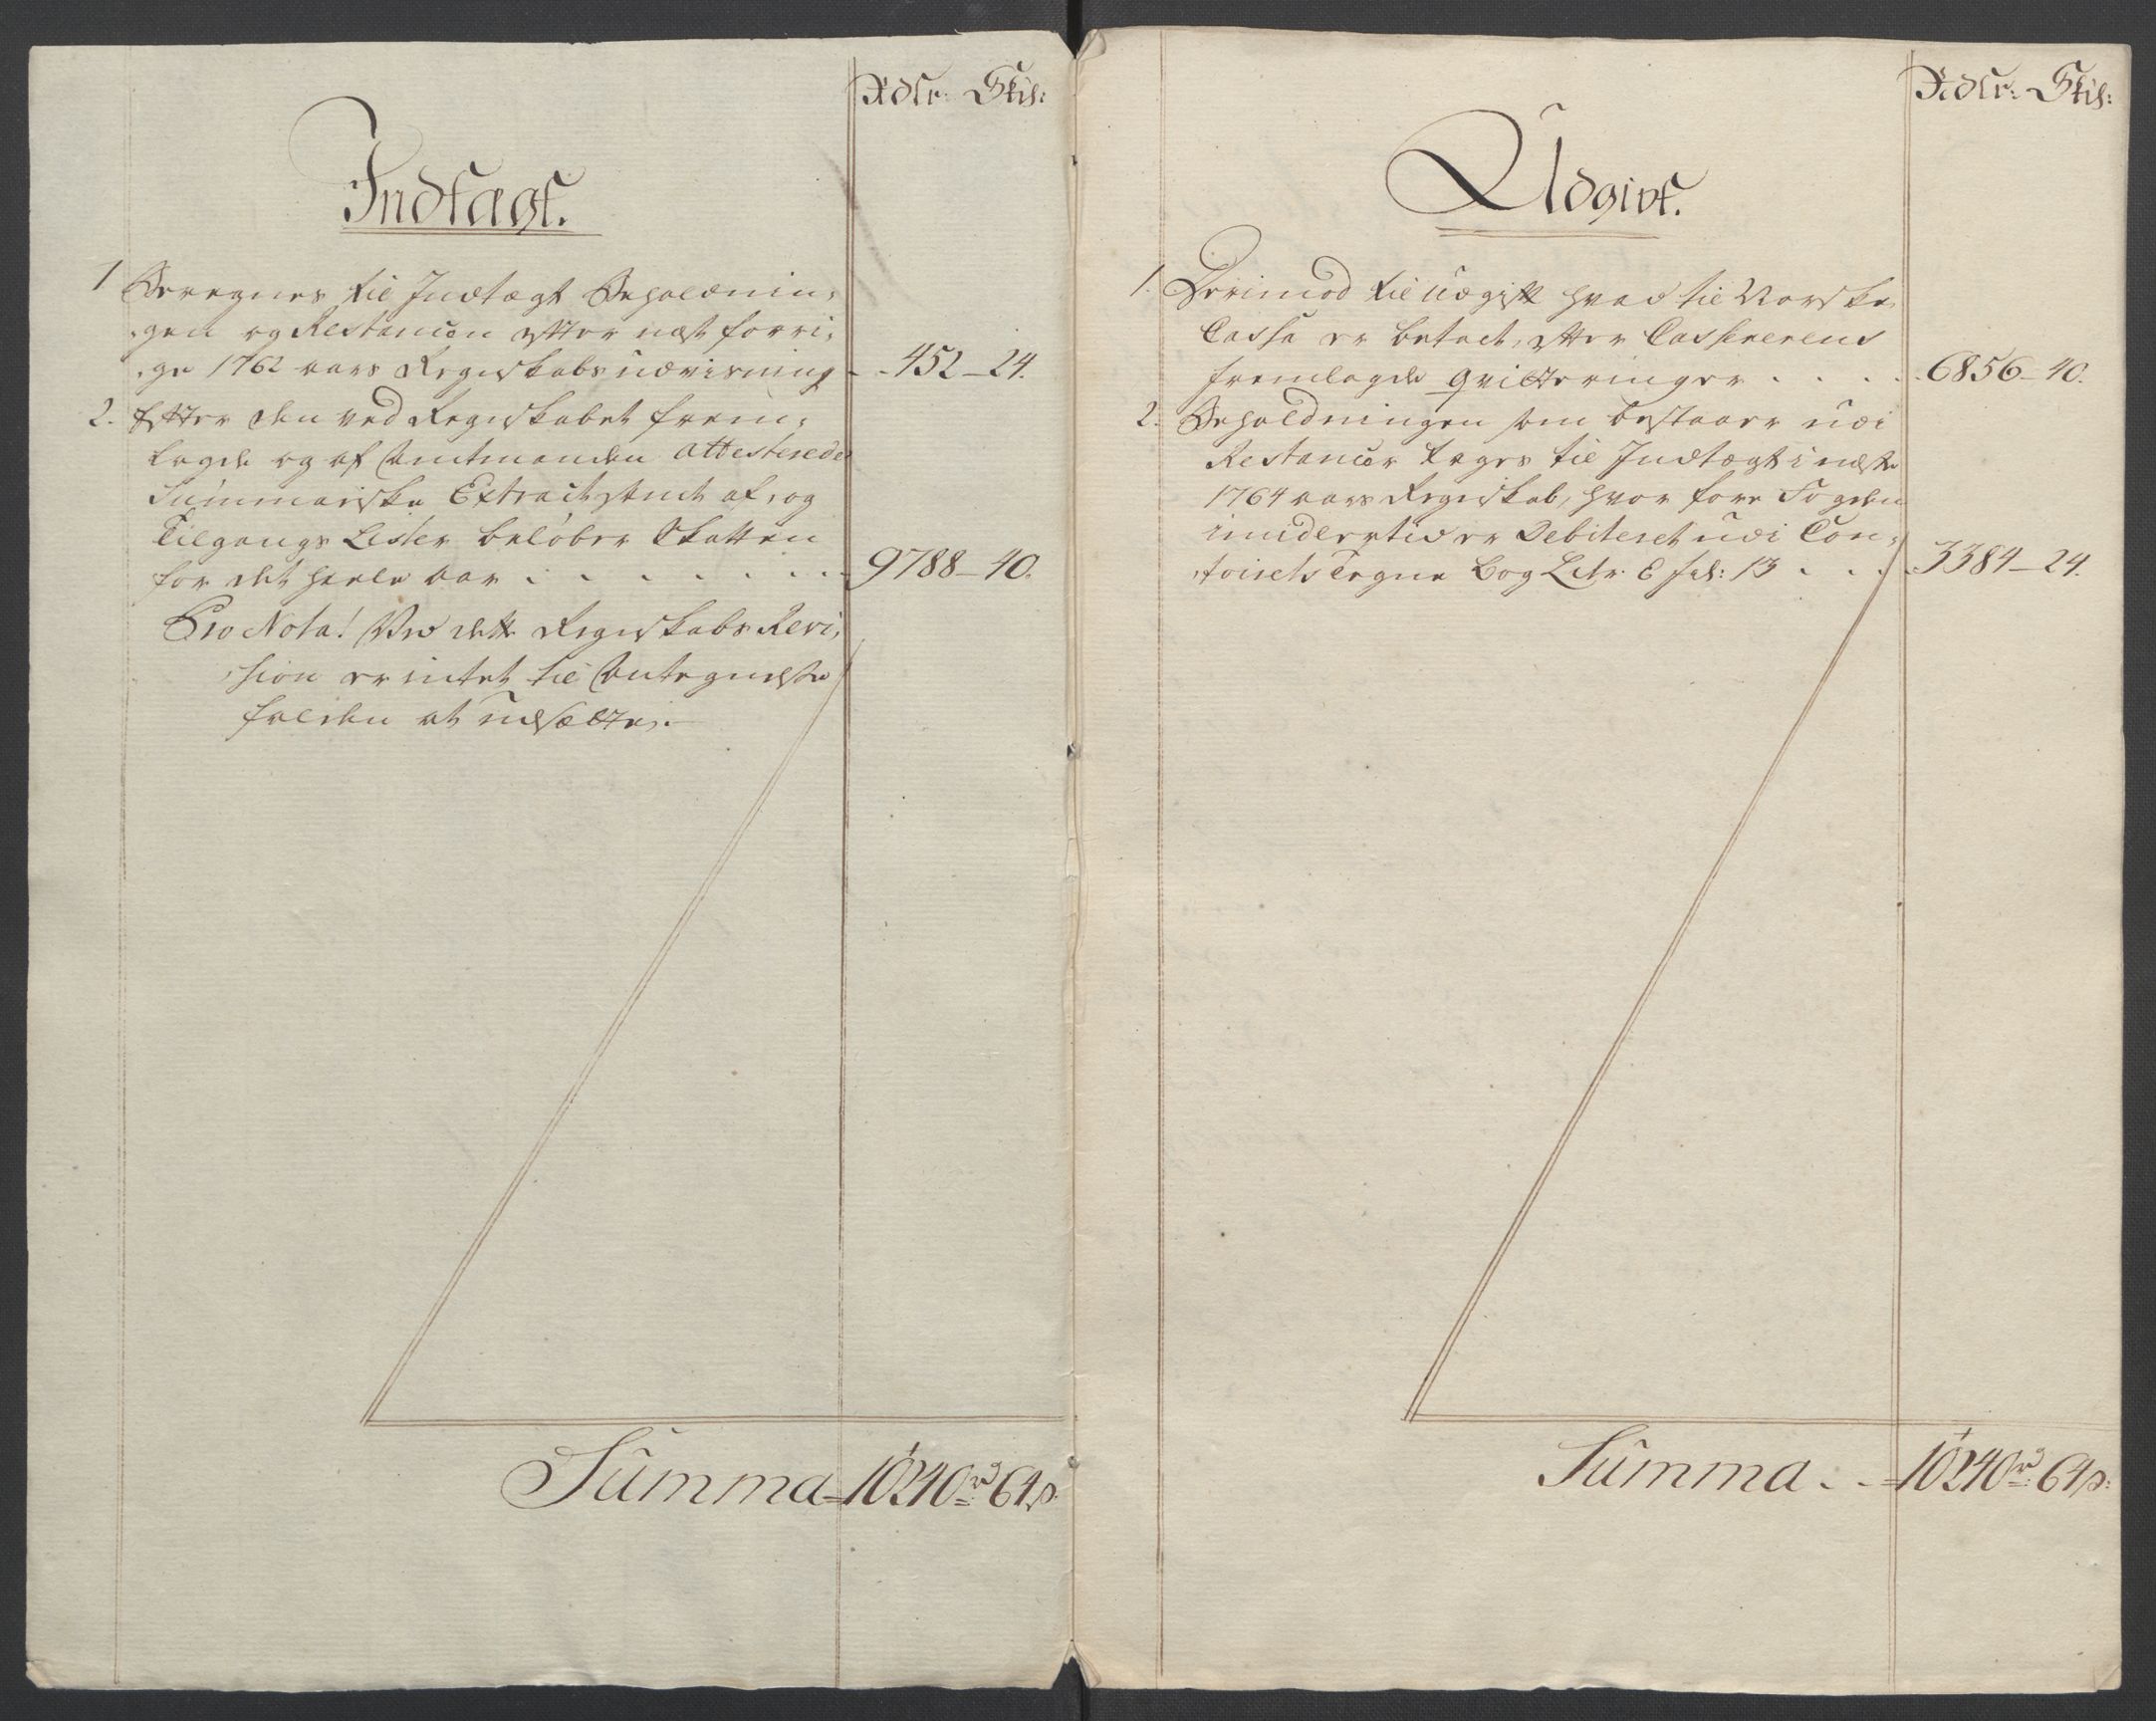 Rdlr: Skil:
Indtægt.
1 Beregnes til Indtægt Beholdnin,
,gen og Restancen efter næst forri,
,ge 1762 aars Regnskabs udvisning - - 452 - 24.
2. Efter den ved Regnskabet frem,
lagde og af Amtmanden attesterede
Summariske Extract samt af, og
Tilgangs Lister beløber Skatten
for det heele aar . . . . . . . 9788 - 40.
Pro Nota! Ved dette Regnskabs Revi,
,sion er intet til Antegnelse
falden at udsætte.
Summa = 10240 rd 64 s:
Rdlr: Skil:
Udgivt.
1. Derimod til Udgift hvad til Norske
Cassa er betalt, efter Cassererens
fremlagde Qvitteringer . . . . 6856 - 40.
2. Beholdningen som bestaaer udi
Restancer tages til Indtægt i næste
1764 aars Regnskab, hvor fore Fogden
imidlertid er Debiteret udi Con,
,toirets Tegne Bog Litr: E fol: 13 . . . 3384 - 24.
Summa . . = 10240 rd 64 s: